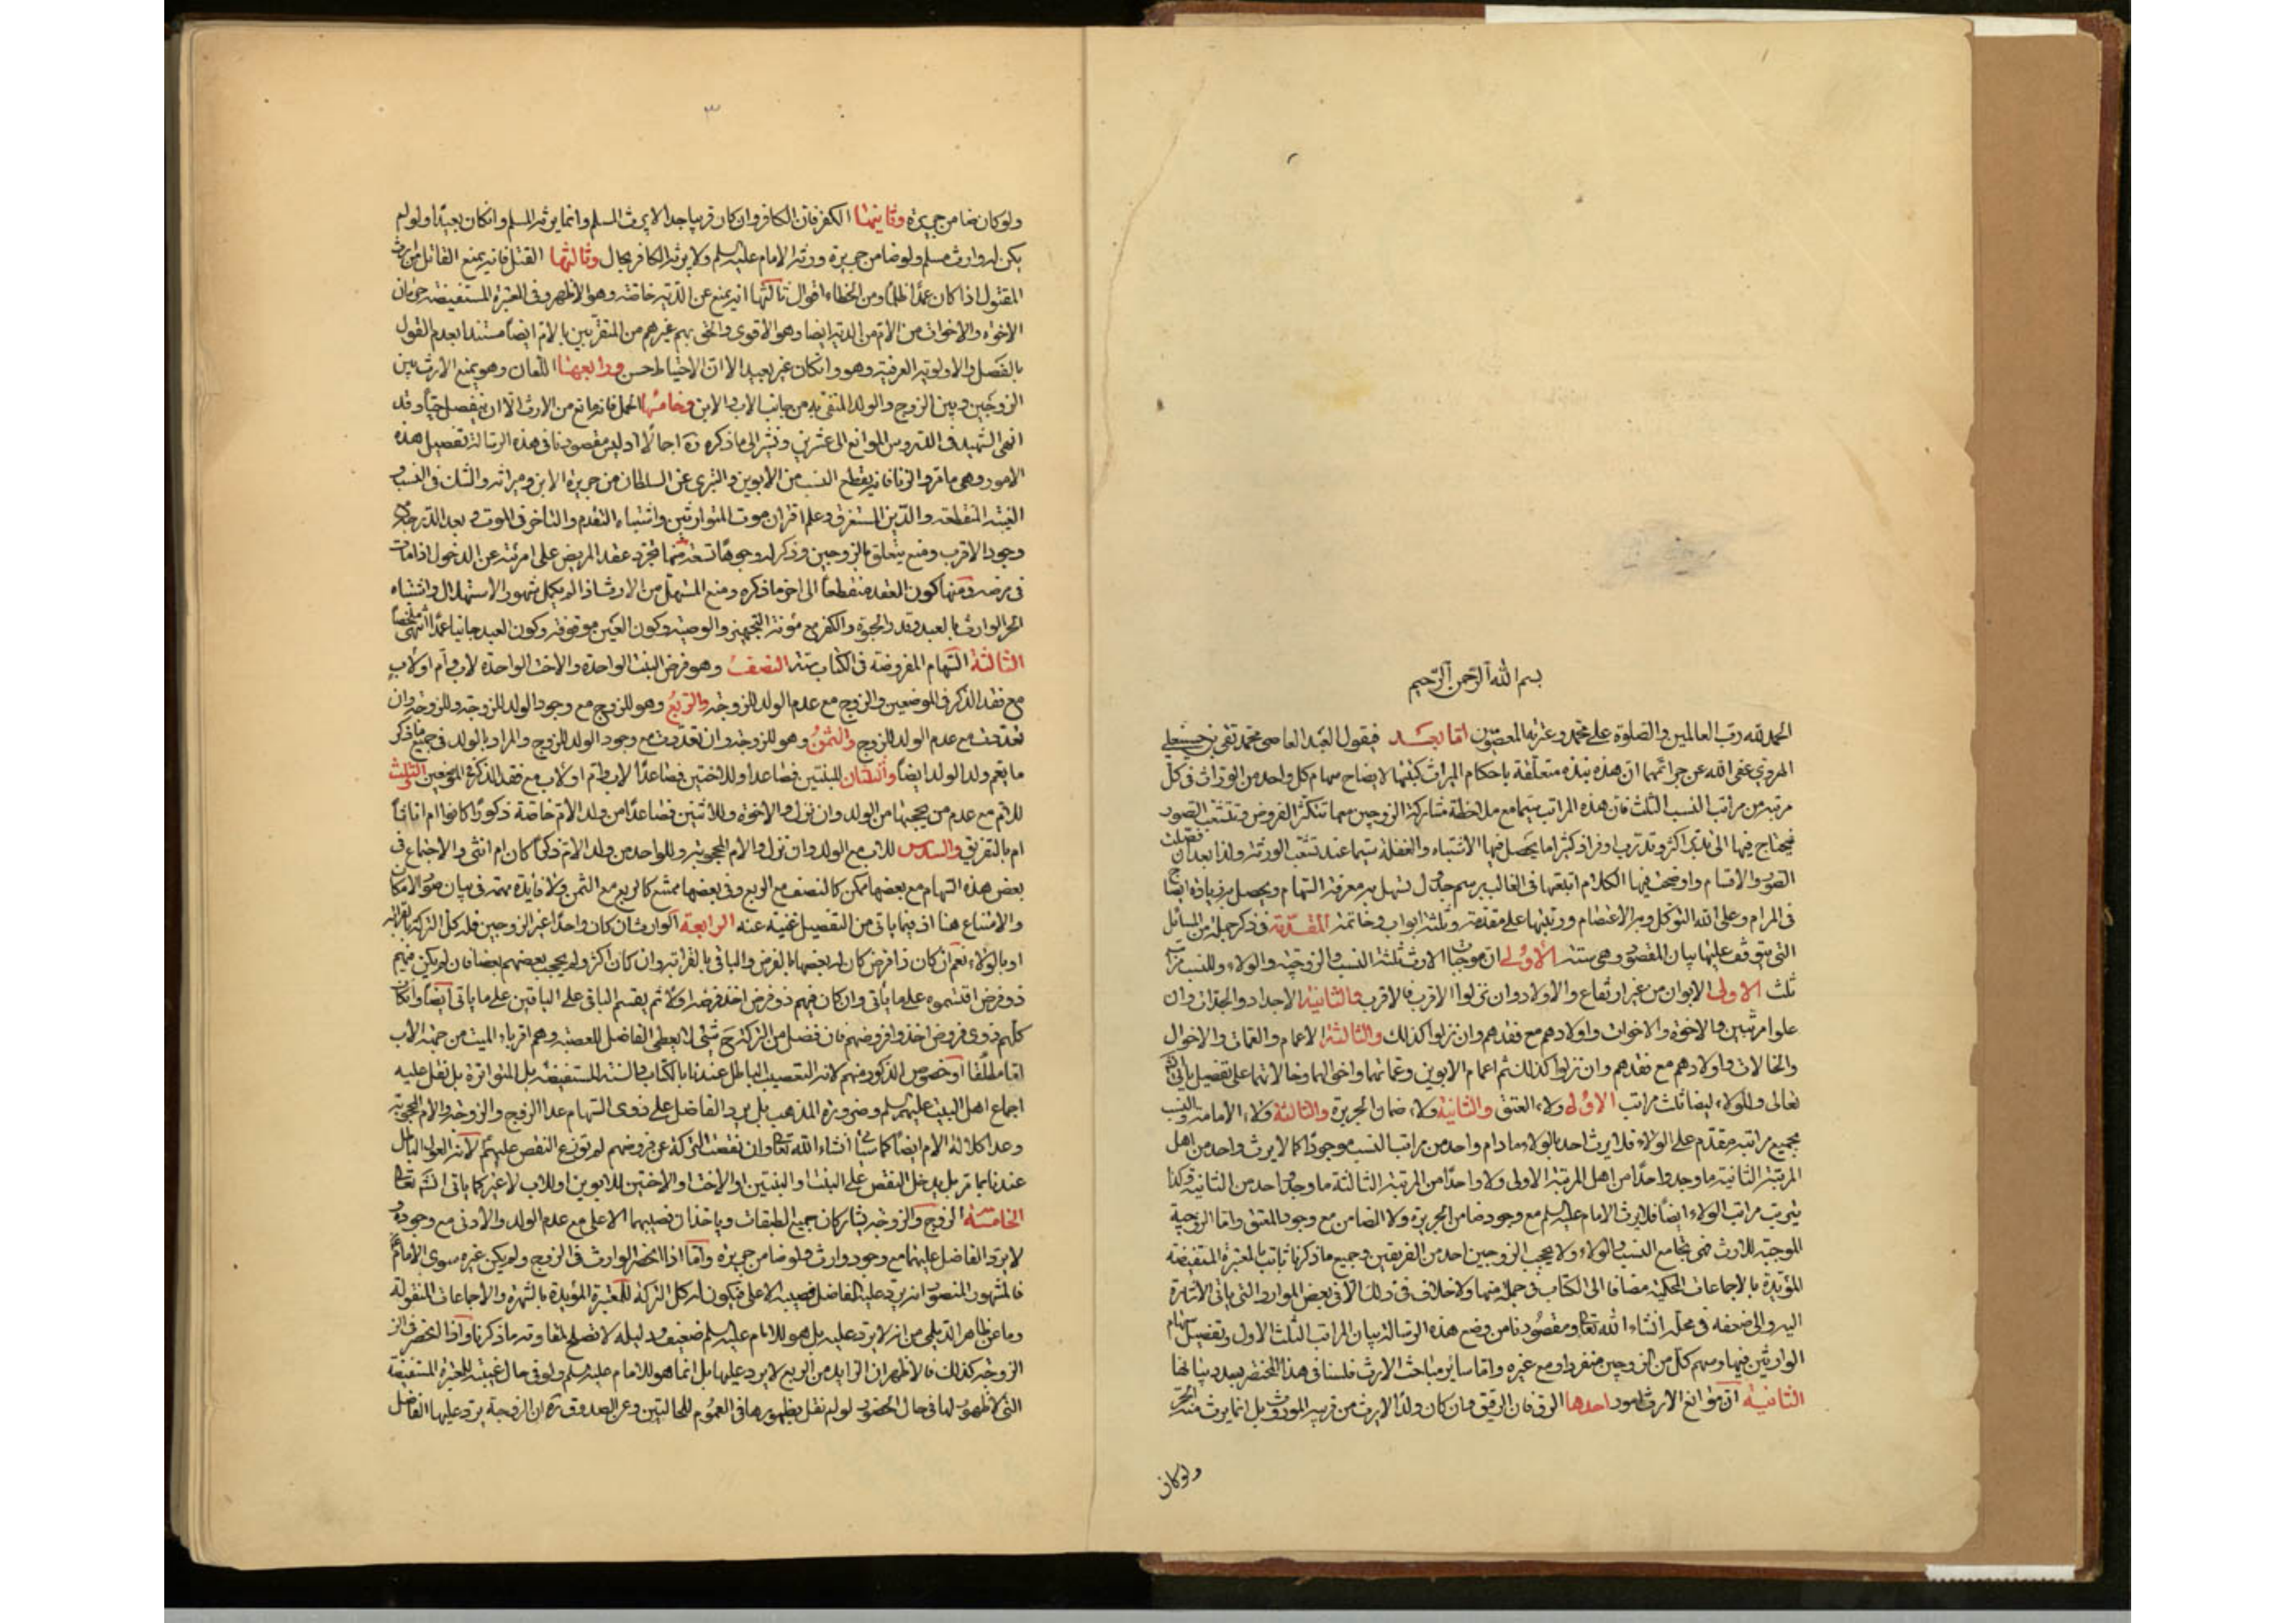 بسم الله الرحمن الرحيم
الحمد لله رب العالمين والصلوة على محمد وعترته المعصومين اما بعد فيقول العبد العاصى محمد تقى بن حسينعلى
الهروى عفى الله عن جرائمهما ان هذه نبذه متعلقة باحكام الميراث كتبتها لايضاح سهام كل واحد من الوراث فى كل
مرتبه من مراتب النسب الثلث فان هذه المراتب سيما مع ملاحظة مشاركة الزوجين معها تتكثر الفروض وتتشعب الصور
فيحتاج فيها الى تدبر اكثر وتدرب اوفر اذ كثيرا ما يحصل فيها الاشتباه والغفلة سيما عند تشعب الورثه ولذا بعد ان فصلت
الصور والاقسام واوضحت فيها الكلام اتبعتها فى الغالب برسم جدول تسهل به معرفة السهام ويحصل به زيادة ايضاح
فى المرام وعلى الله التوكل وبه الاعتصام ورتبتها على مقدمه وثلثة ابواب وخاتمه المقدمة فى ذكر جملة من المسائل
التى يتوقف عليها بيان المقصود وهى ستة الاولى ان موجبات الارث ثلثة النسب والزوجية والولاء وللنسب مراتب
ثلث الاولى الابوان من غير ارتفاع والاولاد وان نزلوا الاقرب فالاقرب والثانية الاجداد والجدات وان
علوا مرتبين والاخوة والاخوات واولادهم مع فقدهم وان نزلوا كذلك والثالثة الاعمام والعمات والاخوال
والخالات واولادهم مع فقدهم وان نزلوا كذلك ثم اعمام الابوين وعماتهما واخوالهما وخالاتهما على تفصيل ياتى انشاء الله
تعالى وللولاء ايضا ثلث مراتب الاولى ولاء العتق والثانية ولاء ضمان الجريرة والثالثة ولاء الامامة والنسب
بجميع مراتبه مقدم على الولاء فلا يرث احد بالولاء ما دام واحد من مراتب النسب موجودا كما لا يرث واحد من اهل
المرتبة الثانية ما وجد واحدا من اهل المرتبة الاولى ولا واحدا من المرتبة الثالثة ما وجد واحد من الثانية وكذا
يترتب مراتب الولاء ايضا فلا يرث الامام عليه السلم مع وجود ضامن الجريرة ولا الضامن مع وجود المعتق واما الزوجية
الموجبة للارث فهى تجامع النسب والولاء ولا يحجب الزوجين احد من الفريقين وجميع ما ذكرنا ثابت بالمعتبرة المستفيضة
المؤيدة بالاجماعات المحكية مضافا الى الكتاب فى جملة منها ولا خلاف فى ذلك الا فى بعض الموارد التى ياتى الاشارة
اليه والى ضعفه فى محله انشاء الله تعالى ومقصودنا من وضع هذه الرسالة بيان المراتب الثلث الاول وتفصيل سهام
الوارثين فيها وسهم كل من الزوجين منفردا ومع غيره واما ساير مباحث الارث فلسنا فى هذا المختصر بصدد بيانها
الثانية ان موانع الارث امور احدها الرق فان الرقيق وان كان ولدا لا يرث من قريبه المورث بل انما يرث منه الحر
ولو كان
٣
ولو كان ضامن جريرة وثانيها الكفر فان الكافر وان كان قريبا جدا لا يرث المسلم وانما يرثه المسلم وان كان بعيدا ولو لم
يكن له وارث مسلم ولو ضامن جريرة ورثه الامام عليه السلم ولا يرثه الكافر بحال وثالثها القتل فانه يمنع القاتل من ارث
المقتول اذا كان عمدا ظلما ومن الخطاء اقوال ثالثها انه يمنع عن الدية خاصة وهو الاظهر وفى المعتبرة المستفيضة حرمان
الاخوة والاخوات من الام من الدية ايضا وهو الاقوى والحق بهم غيرهم من المتقربين بالام ايضا مستندا بعدم القول
بالفصل والاولوية العرفية وهو وان كان غير بعيد الا ان الاحتياط احسن ورابعها اللعان وهو يمنع الارث بين
الزوجين وبين الزوج والولد المنفى به من جانب الاب والابن وخامسها الحمل فانه مانع من الارث الا ان ينفصل حيا وقد
انهى الشهيد فى الدروس الموانع الى عشرين ونشير الى ما ذكره ره اجمالا اذ ليس مقصودنا فى هذه الرسالة تفصيل هذه
الامور وهى ما مر والزنا فانه يقطع النسب من الابوين والتبرى عن السلطان من جريرة الابن وميراثه والشك فى النسب و
الغيبة المنقطعة والدين المستغرق وعلم اقتران موت المتوارثين واشتباه التقدم والتاخر فى الموت وبعد الدرجة مع
وجود الاقرب ومنع يتعلق بالزوجين وذكر له وجوها تسعة منها تجرد عقد المريض على امرئة عن الدخول اذا مات
فى مرضه ومنها كون العقد منقطعا الى اخر ما ذكره ومنع المستهل من الارث اذا لم يكمل شهود الاستهلال واشتباه
الحر الوارث بالعبد وقدر الحبوة والكفن مع مؤنة التجهيز والوصية وكون العين موقوفة وكون العبد جانيا عمدا انتهى ملخصا
الثالثة السهام المفروضة فى الكتاب ستة النصف وهو فرض البنت الواحدة والاخت الواحدة لاب وام او لاب
مع فقد الذكر فى الموضعين والزوج مع عدم الولد للزوجة والربع وهو للزوج مع وجود الولد للزوجة وللزوجة وان
تعددت مع عدم الولد للزوج والثمن وهو للزوجة وان تعددت مع وجود الولد للزوج والمراد بالولد فى جميع ما ذكر
ما يعم ولد الولد ايضا والثلثان للبنتين فصاعدا وللاختين فصاعدا لاب وام او لاب مع فقد الذكر فى الموضعين والثلث
للام مع عدم من يحجبها من الولد وان نزل والاخوة وللاثنين فصاعدا من ولد الام خاصة ذكورا كانوا ام اناثا
ام بالتفريق والسدس للاب مع الولد وان نزل والام المحجوبة وللواحد من ولد الام ذكرا كان ام انثى والاجتماع فى
بعض هذه السهام مع بعضها ممكن كالنصف مع الربع وفى بعضها ممتنع كالربع مع الثمن ولا فايدة مهمة فى بيان صور الامكان
والامتناع هنا اذ فيما ياتى من التفصيل غنية عنه الرابعة الوارث ان كان واحدا غير الزوجين فله كل التركة بالقرابة
او بالولاء نعم ان كان ذا فرض كان له بعضها بالفرض والباقى بالقرابة وان كان اكثر ولم يحجب بعضهم بعضا فان لم يكن فيهم
ذو فرض اقتسموه على ما ياتى وان كان فيهم ذو فرض اخذ فرضه اولا ثم يقسم الباقى على الباقين على ما ياتى ايضا وان كان
كلهم ذوى فروض اخذوا فروضهم فان فضل من التركة ح شئ لا يعطى الفاضل للعصبة وهم اقرباء الميت من جهة الاب
اما مطلقا او خصوص الذكور منهم لانه التعصيب الباطل عندنا بالكتاب والسنة المستفيضة بل المتواترة بل نقل عليه
اجماع اهل البيت عليهم السلم وضرورة المذهب بل يرد الفاضل على ذوى السهام عدا الزوج والزوجة والام المحجوبة
وعدا كلالة الام ايضا كما سياتى انشاء الله تعالى وان نقصت التركة عن فروضهم لم توزع النقص عليهم لانه العول الباطل
عندنا بما مر بل يدخل النقص على البنت او البنتين او الاخت او الاختين للابوين او للاب لا غير كما ياتى انشاء الله تعالى
الخامسة الزوج والزوجة يشاركان جميع الطبقات وياخذان نصيبهما الاعلى مع عدم الولد والادنى مع وجوده و
لا يرد الفاضل عليهما مع وجود وارث ولو ضامن جريرة واما اذا انحصر الوارث فى الزوج ولم يكن غيره سوى الامام
فالمشهور المنصور انه يرد عليه الفاضل من نصيبه الاعلى فيكون له كل التركة للمعتبرة المؤيدة بالشهرة والاجماعات المنقولة
وما عن ظاهر الديلمى من انه لا يرد عليه بل هو للامام عليه السلم ضعيف ودليله لا تصلح لمقاومة ما ذكرنا واذا انحصر فى
الزوجة كذلك فالاظهر ان الزايد من الربع لا يرد عليها بل انما هو للامام عليه السلم ولو فى حال غيبته للمعتبرة المستفيضة
التى لا ظهور لها فى حال الحضور لو لم نقل بظهورها فى العموم للحالتين وعن الصدوق ره ان الزوجة يرد عليها الفاضل